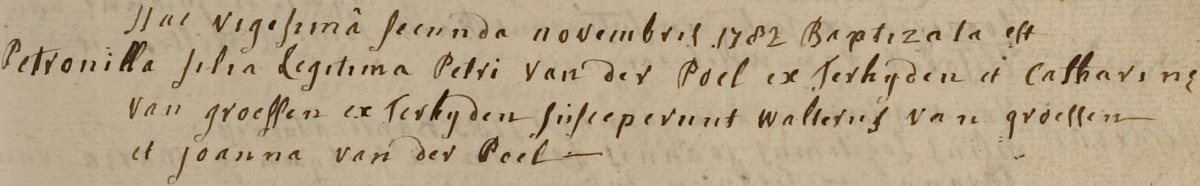 Hac vigesimâ secunda novembris 1782 Baptizata est
Petronilla filia Legitima Petri van der Poel ex Terhyden et Catharinę
van groessen ex Terhyden susceperunt walterus van groessen
et joanna van der Poel